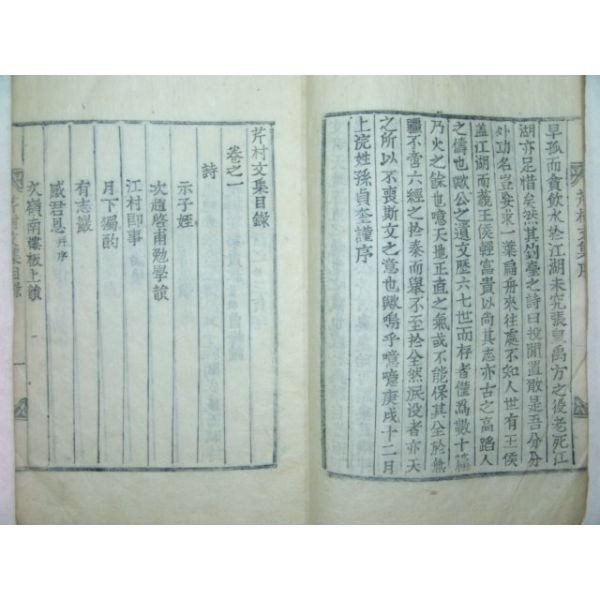 早孤而貪飮水於江湖未究張皇萬方之優老死江
湖亦足惜矣然其釣臺之詩曰投閒置散是吾分分
外功名豈妄求一葉扁舟來往處不知人世有王侯
盖江湖而藐王侯輕富貴以尚其志亦古之高蹈人
之儔也歟公之遺文歷六七世而存者僅爲數十篇
乃火之餘也噫天地正直之氣或不能保其全於無
疆不啻六經之於秦而擧不至於全然泯沒者亦天
之所以不喪斯文之意也歟嗚乎噫噫庚戌十二月
上浣姓孫貞奎謹序
芹村文集序
芹村文集目錄
卷之一
詩
示子姪
次趙啓甫勉學韻
江村卽事
月下獨酌
有志巖
感君恩幷序
次嶺南樓板上韻
芹村文集目錄